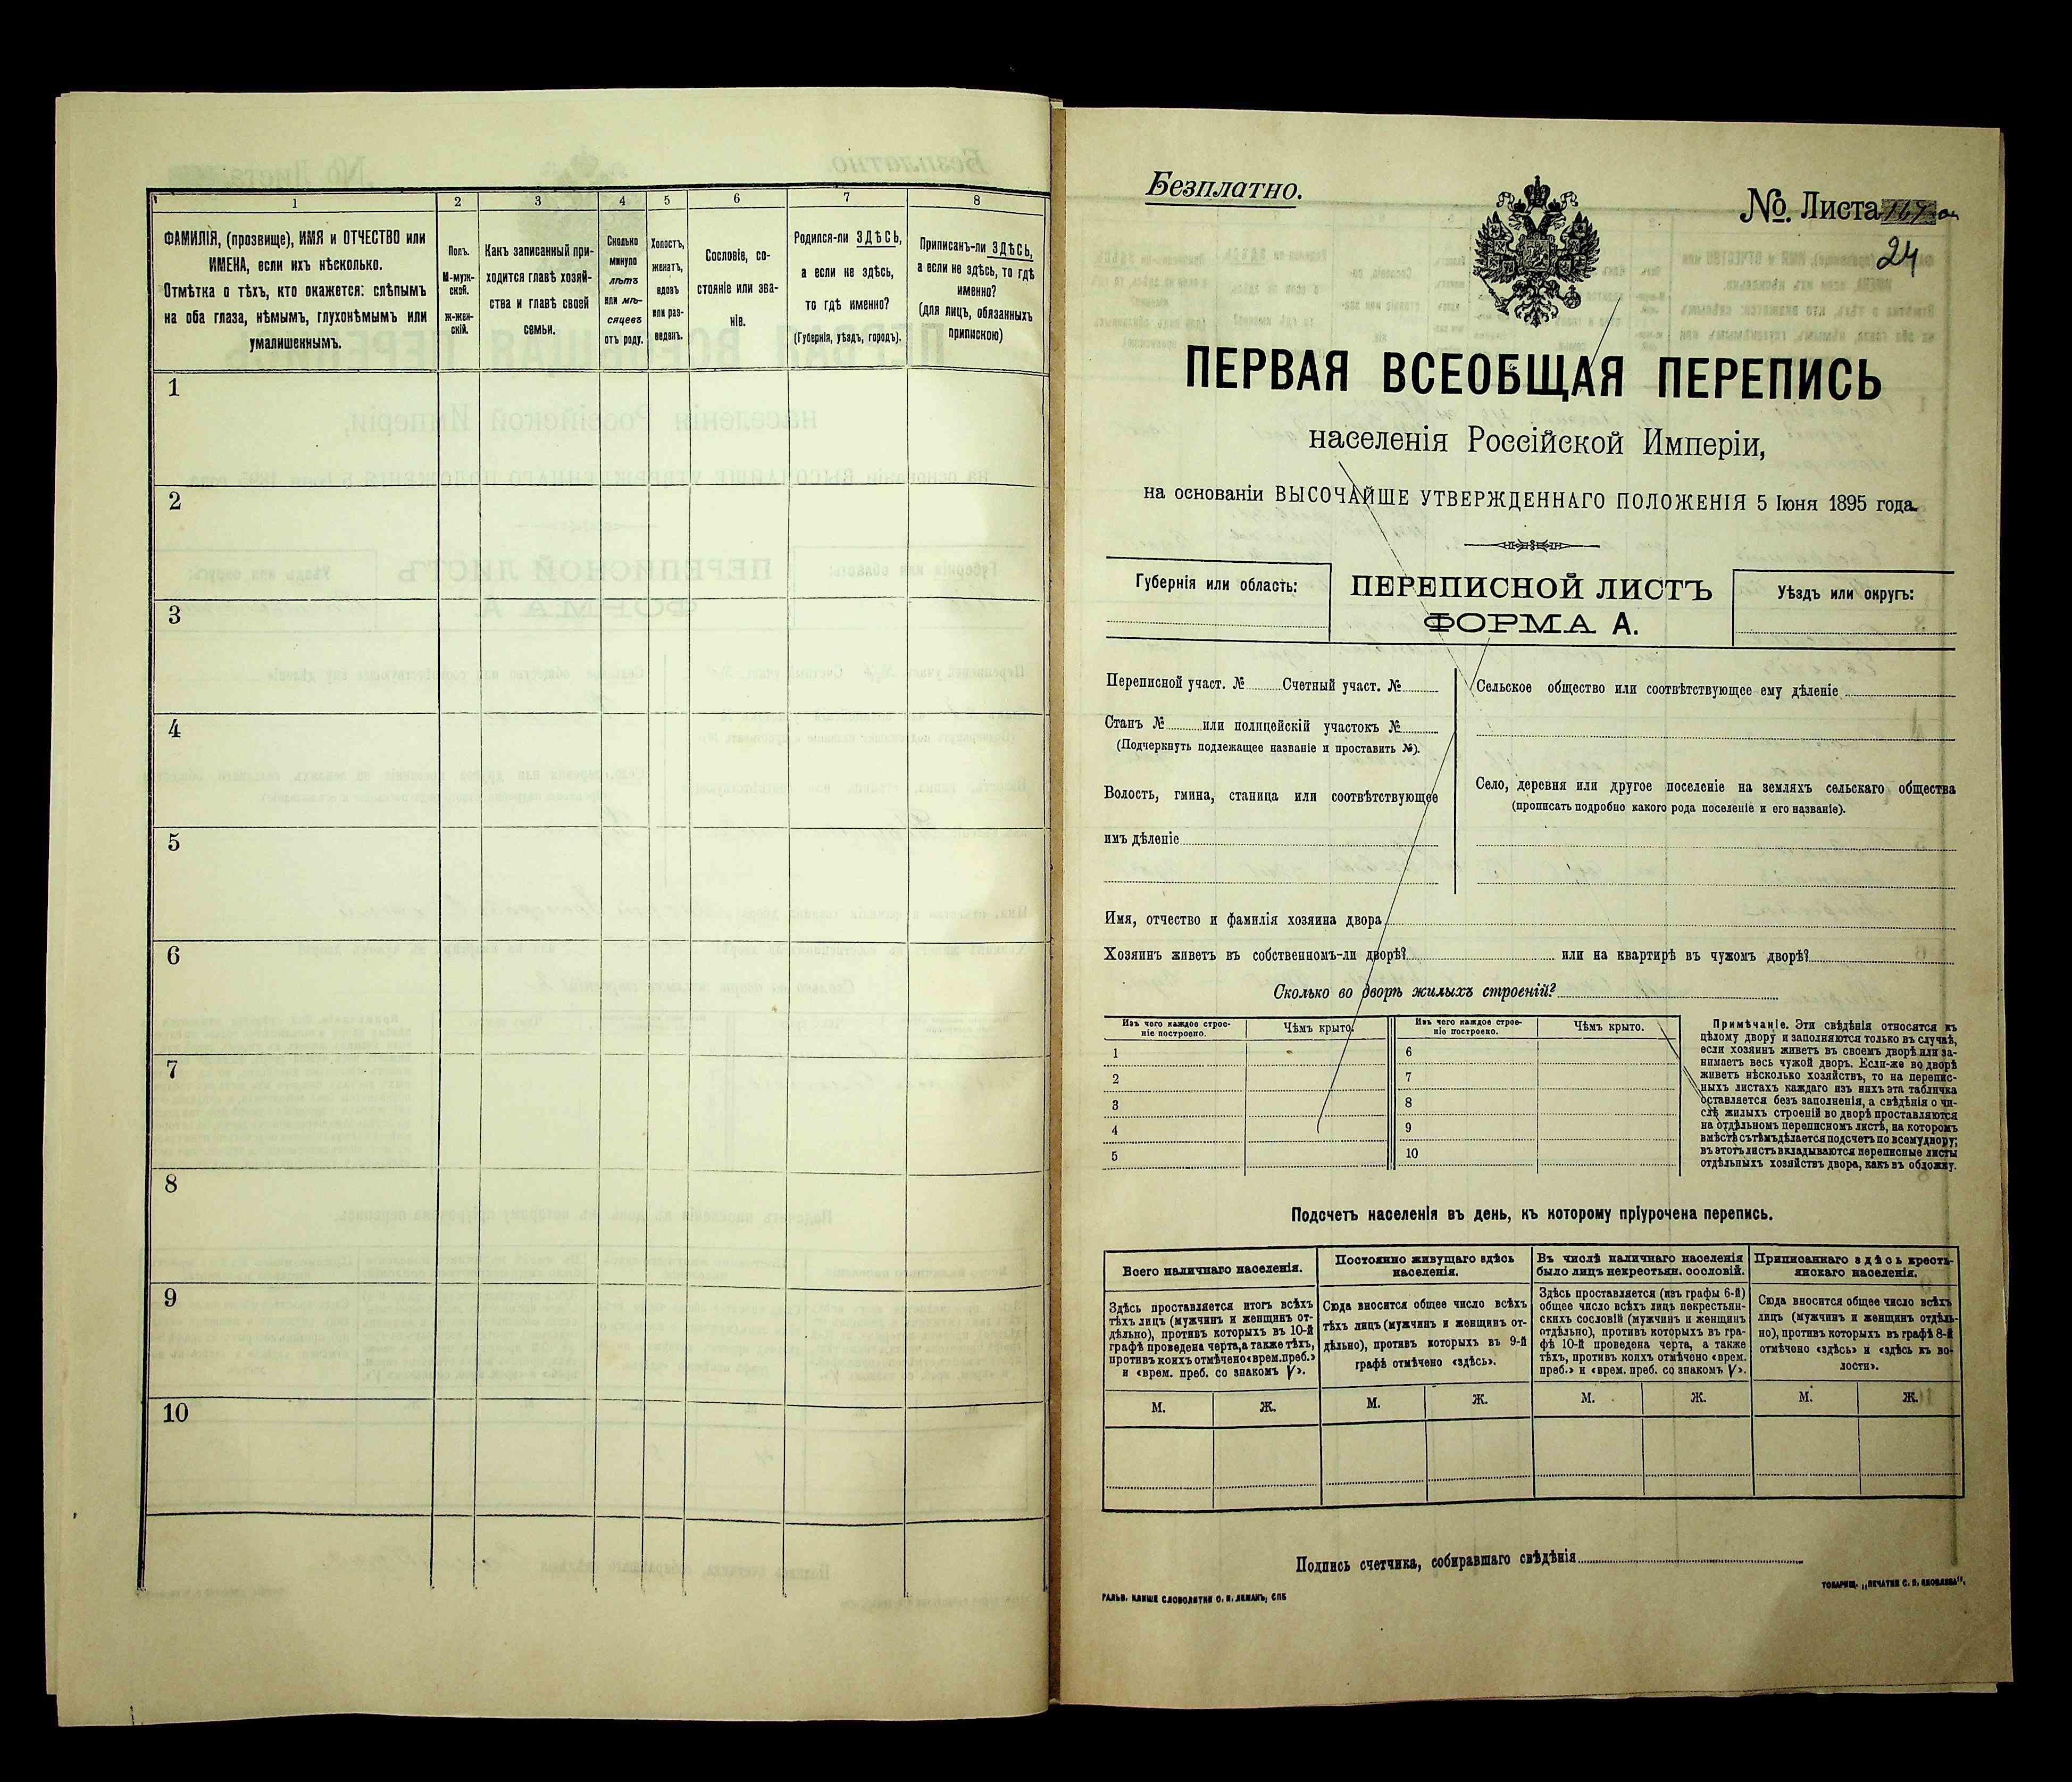 1 2 3 4 5 6 7 8
ФАМИЛІЯ, (прозвище), ИМЯ и ОТЧЕСТВО или
ИМЕНА, если ихъ нѣсколько.
Отмѣтка о тѣхъ, кто окажется: слѣпымъ
на оба глаза, нѣмымъ, глухонѣмымъ или
умалишеннымъ.
Полъ.
М-муж-
ской.
ж-жен-
скій.
Какъ записанный при-
ходится главѣ хозяй-
ства и главѣ своей
семьи.
Сколько
минуло
лѣтъ
или мѣ-
сяцевъ
отъ роду.
Холостъ,
женатъ,
вдовъ
или раз-
веденъ.
Сословіе, со-
стояніе или зва-
ніе.
Родился-ли ЗДѢСЬ,
а если не здѣсь,
то гдѣ именно?
(Губернія, уѣздъ, городъ).
Приписанъ-ли ЗДѢСЬ,
а если не здѣсь, то гдѣ
именно?
(для лицъ, обязанныхъ
припискою)
1
2
3
4
5
6
7
8
9
10
Безплатно.
№ Листа
24
ПЕРВАЯ ВСЕОБЩАЯ ПЕРЕПИСЬ
населенія Россійской Имперіи,
на основаніи ВЫСОЧАЙШЕ УТВЕРЖДЕННАГО ПОЛОЖЕНІЯ 5 Іюня 1895 года.
Губернія или область:
ПЕРЕПИСНОЙ ЛИСТЪ
ФОРМА А.
Уѣздъ или округъ:
Переписной участ. № Счетный участ. №
Станъ № или полицейскій участокъ №
(Подчеркнуть подлежащее названіе и проставить №).
Волость, гмина, станица или соотвѣтствующее
имъ дѣленіе
Сельское общество или соотвѣтствующее ему дѣленіе
Село, деревня или другое поселеніе на земляхъ сельскаго общества
(прописать подробно какого рода поселеніе и его названіе).
Имя, отчество и фамилія хозяина двора
Хозяинъ живетъ въ собственномъ-ли дворѣ? или на квартирѣ въ чужомъ дворѣ?
Сколько во дворѣ жилыхъ строеній?
Изъ чего каждое строе-
ніе построено.
Чѣмъ крыто.
Изъ чего каждое строе-
ніе построено.
Чѣмъ крыто.
1 6
2 7
3 8
4 9
5 10
Примѣчаніе. Эти свѣдѣнія относятся къ
цѣлому двору и заполняются только въ случаѣ,
если хозяинъ живетъ въ своемъ дворѣ или за-
нимаетъ весь чужой дворъ. Если-же во дворѣ
живетъ нѣсколько хозяйствъ, то на перепис-
ныхъ листахъ каждаго изъ нихъ эта табличка
оставляется безъ заполненія, а свѣдѣнія о чи-
слѣ жилыхъ строеній во дворѣ проставляются
на отдѣльномъ переписномъ листѣ, на которомъ
вмѣстѣ съ тѣмъ дѣлается подсчетъ по всему двору;
въ этотъ листъ вкладываются переписные листы
отдѣльныхъ хозяйствъ двора, какъ въ обложку.
Подсчетъ населенія въ день, къ которому пріурочена перепись.
Всего наличнаго населенія.
Здѣсь проставляется итогъ всѣхъ
тѣхъ лицъ (мужчинъ и женщинъ от-
дѣльно), противъ которыхъ въ 10-й
графѣ проведена черта, а также тѣхъ,
противъ коихъ отмѣчено «врем. преб.»
и «врем. преб. со знакомъ V».
Постоянно живущаго здѣсь
населенія.
Сюда вносится общее число всѣхъ
тѣхъ лицъ (мужчинъ и женщинъ от-
дѣльно), противъ которыхъ въ 9-й
графѣ отмѣчено «здѣсь».
Въ числѣ наличнаго населенія
было лицъ некрестьян. сословій.
Здѣсь проставляется (изъ графы 6-й)
общее число всѣхъ лицъ некрестьян-
скихъ сословій (мужчинъ и женщинъ
отдѣльно), противъ которыхъ въ гра-
фѣ 10-й проведена черта, а также
тѣхъ, противъ коихъ отмѣчено «врем.
преб.» и «врем. преб. со знакомъ V».
Приписаннаго здѣсь кресть-
янскаго населенія.
Сюда вносится общее число всѣхъ
лицъ (мужчинъ и женщинъ отдѣль-
но), противъ которыхъ въ графѣ 8-й
отмѣчено «здѣсь» и «здѣсь къ во-
лости».
М. Ж. М. Ж. М. Ж. М. Ж.
Подпись счетчика, собиравшаго свѣдѣнія
ГАЛЬВ. КЛИШЕ СЛОВОЛИТНИ О. И. ЛЕМАНЪ, СПБ
ТОВАРИЩ. „ПЕЧАТНЯ С. П. ЯКОВЛЕВА“.